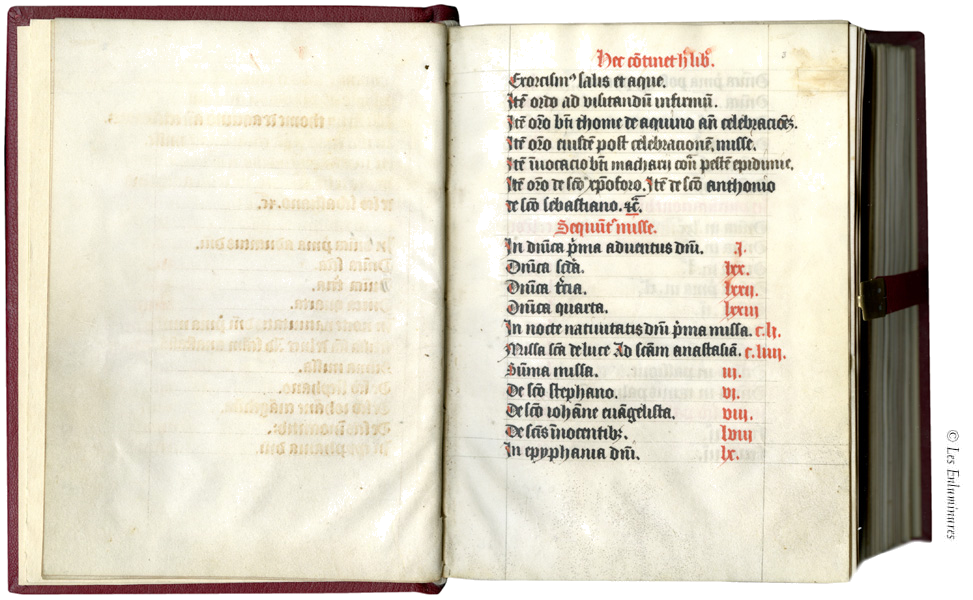 Hec cōtinet h lib̄.
Exorcism⁹ salis et aque.
Itē ordo ad visitandū infirmū.
Itē orō bti thome de aquino an̄ celebracōēs.
Itē orō eiusdē post celebracionē misse.
Itē īuocacio bti macharii con̄ pestē epidimie.
Itē orō de scō xp̄oforo. Itē de scō anthonio
de scō sebastiano. ⁊c̄.
Sequūt̄ misse.
In dn̄ica p̄ma aduentus dn̄i. j.
Dn̄ica scd̄a. lxx.
Dn̄ica t̄cia. lxxij.
Dn̄ica quarta. lxxiii
In nocte natiuitatis dn̄i p̄ma missa. c.lj.
Missa scd̄a de luce Ad scām anastasiā. c.liiij.
Sūma missa. iij.
De scō stephano. vj.
De scō iohāne euāgelista. viij.
De scīs īnocentibꝫ. lviij
In epyphania dn̄i. lx.
3
© Les Enluminures